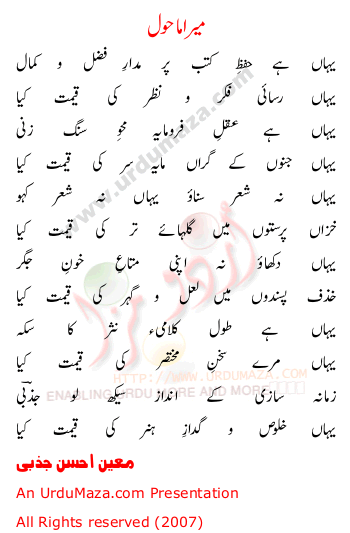 میرا ماحول
یہاں ہے حفظِ کتب پر مدارِ فضل و کمال
یہاں رسائیِ فکر و نظر کی قیمت کیا
یہاں ہے عقلِ فرومایہ محوِ سنگ زنی
یہاں جنوں کے گراں مایہ سر کی قیمت کیا
یہاں نہ شعر سناؤ یہاں نہ شعر کہو
خزاں پرستوں میں گلہائے تر کی قیمت کیا
یہاں دکھاؤ نہ اپنی متاعِ خونِ جگر
خذف پسندوں میں لعل و گہر کی قیمت کیا
یہاں ہے طول کلامیء نثر کا سکہ
یہاں مرے سخنِ مختصر کی قیمت کیا
زمانہ سازی کے انداز سیکھ لو جذبیؔ
یہاں خلوص و گدازِ ہنر کی قیمت کیا
معین احسن جذبی
An UrduMaza.com Presentation
All Rights reserved (2007)
www.urdumaza.com
اردو مزا
HTTP://WWW.URDUMAZA.COM
ENABLING URDU MORE AND MORE